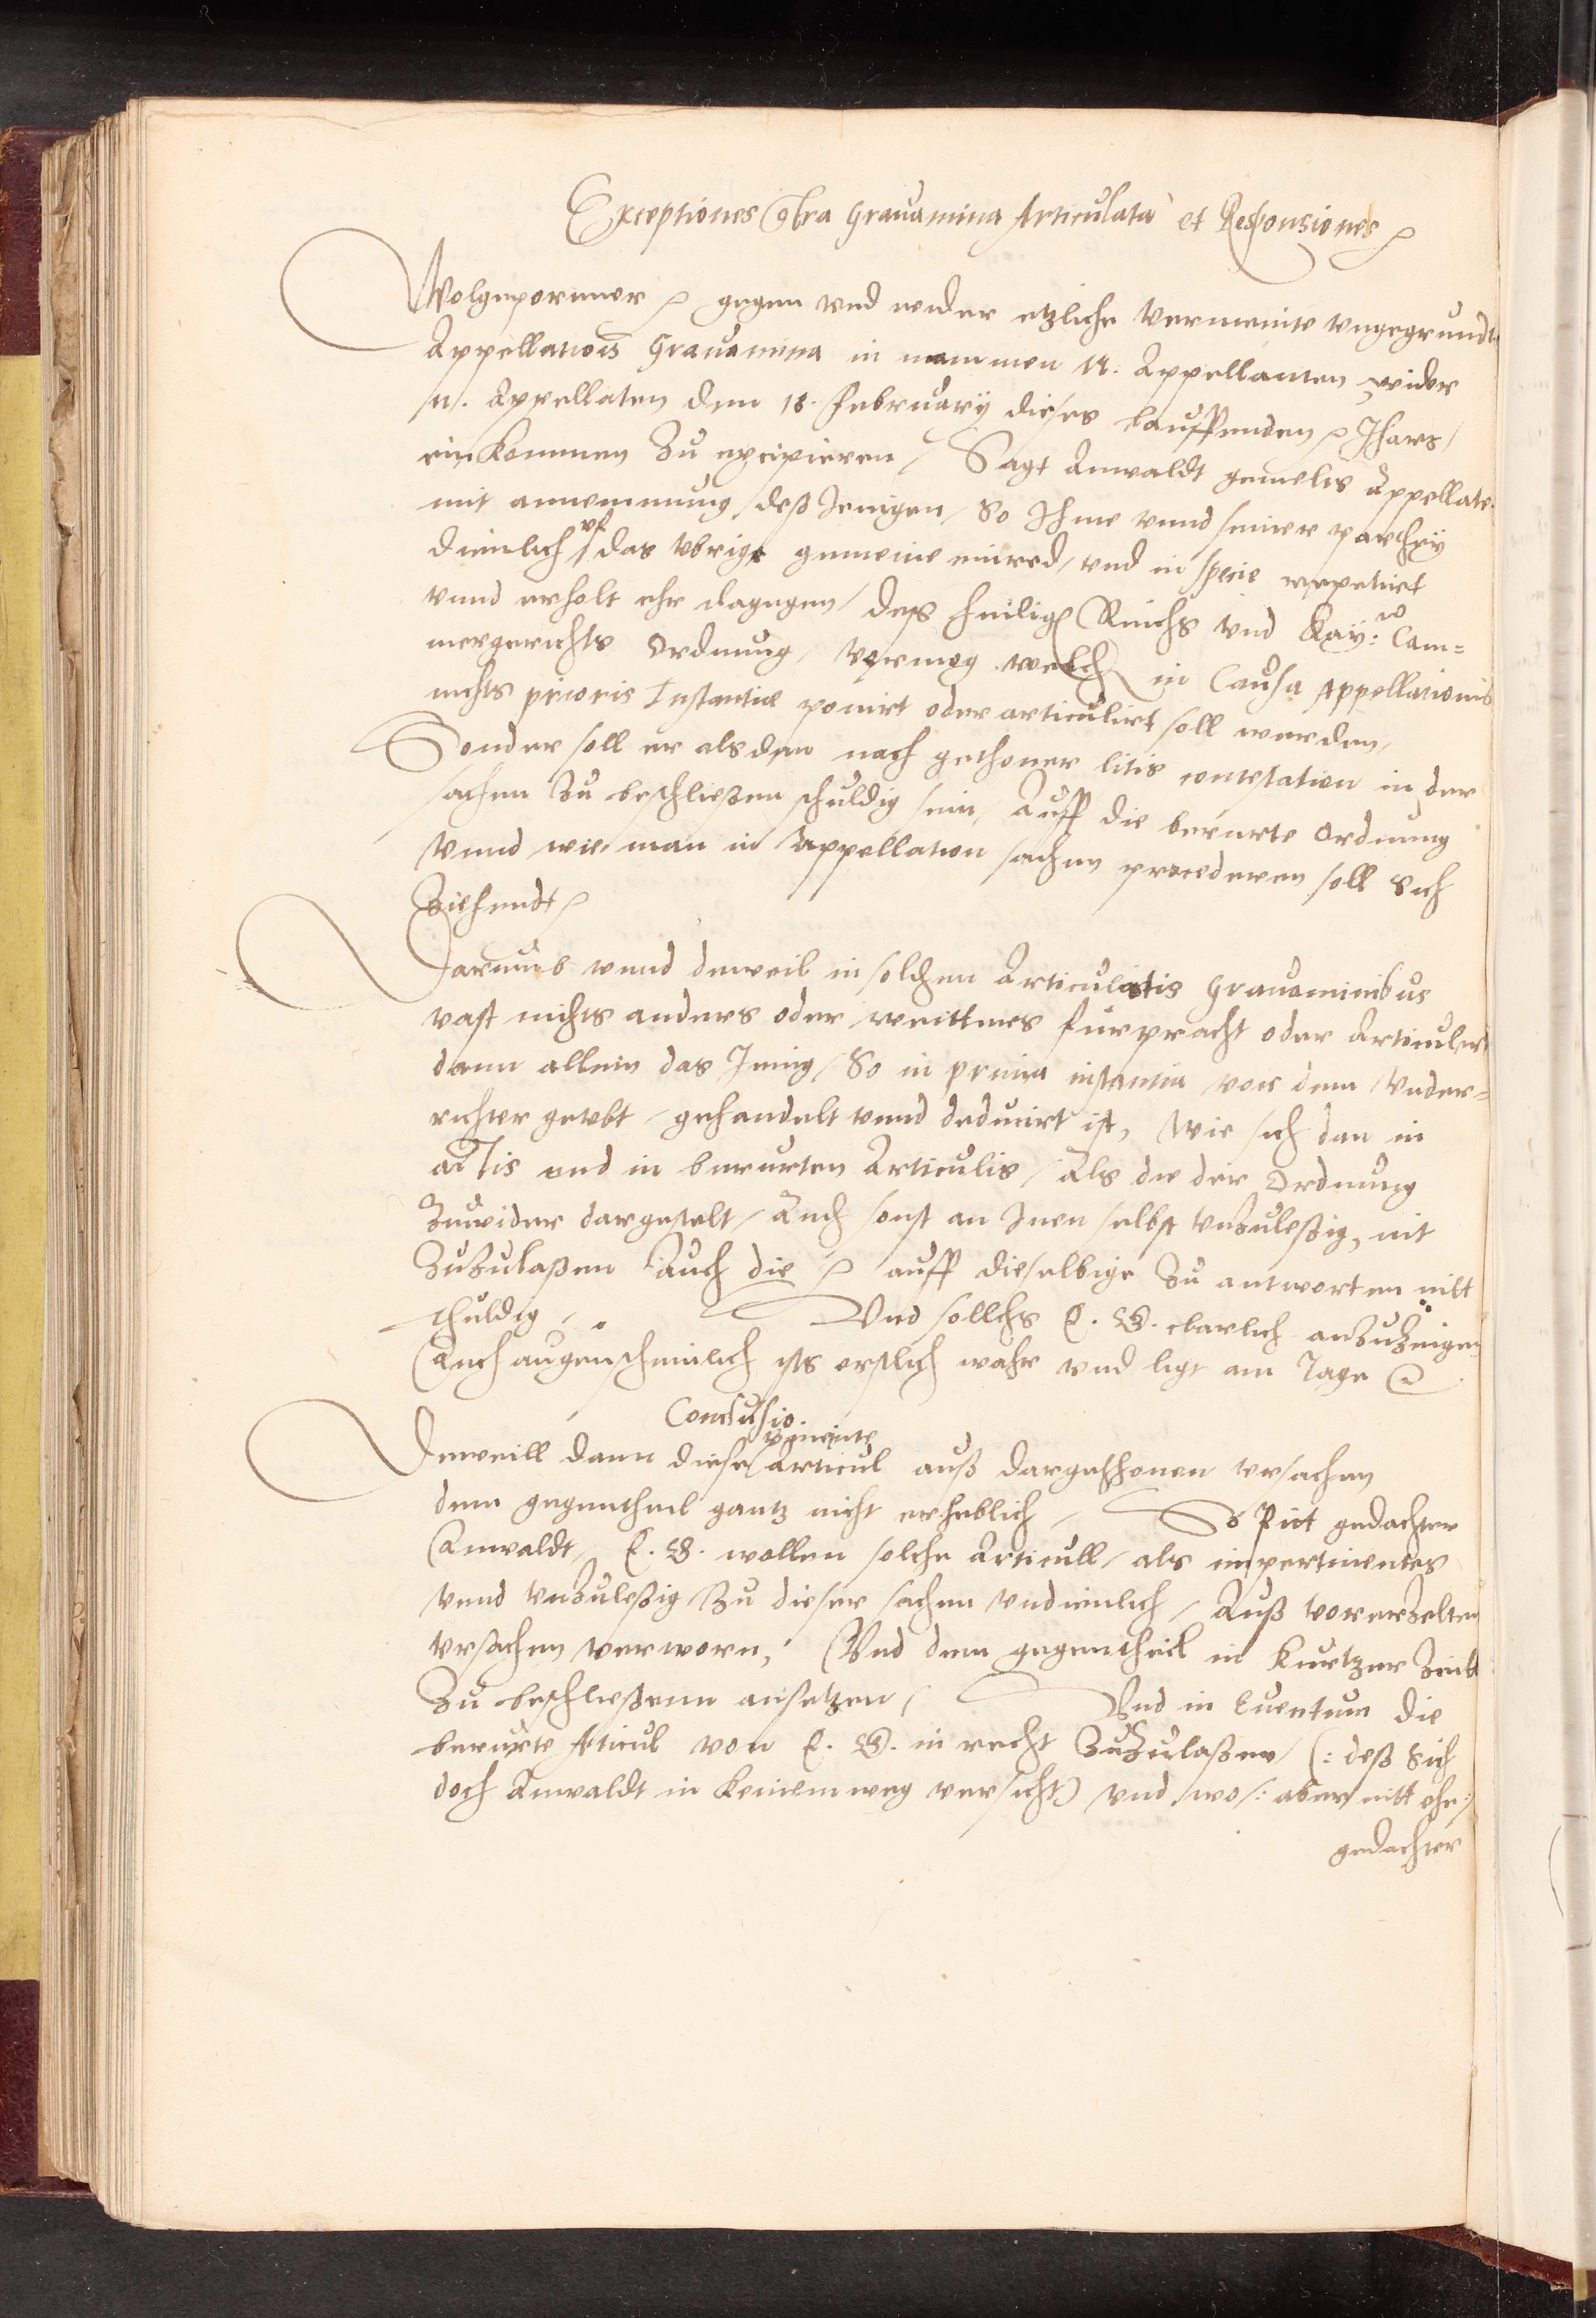 Exceptiones Contra Grauamina Articulata et Responsiones
Wolgeporener gegen vnd wider etzliche vermeinte vngegrundte
Appellationis Grauamina in nammen N. Appellanten wider
N. Appellaten den 18. February dieses lauffenden Jhars /
einkommen zu excipieren / Sagt Anwaldt gemelts Appellate
mit annemmung deß Jenigen / So Ihme vnnd seiner parthey
dienlich / vf das vbrige gemeine einred / vnd in specie repetiert
vnnd erholt ehr dagegen / deß heilig Reichs vnd Kay: Cam=
mergerichts Ordnung / vermog welch in Causa Appellationis
nichts prioris Instantiæ ponirt oder articulirt soll werden /
Sonder soll er als dan nach gethoner litis contestation in der
sachen zu beschließen schuldig sein / Auff die berurte Ordnung
vnnd wie man in Appellation sachen procederen soll sich
Ziehendt
Darumb vnnd dieweil in solchen Articulatis Grauaminibus
vast nichts anders oder weitters furpracht oder Articulert
dann allein das Jenig / So in prima instantia vor dem vnder=
richter geubt / gehandelt vnnd deducirt ist, wie sich dan in
actis vnd in berurten Articulis / Als die der Ordnung
zuwider dargestelt / Auch sonst an Inen selbst vnzuleßig, nit
zuzulaßen Auch die auff dieselbige zu antworten nitt
schuldig / Vnd sollichs E. G. clarlich anzuzeigen
Auch augenscheinlich ists erstlich wahr vnd ligt am Tage
Conclusio.
Dieweill dann diese vermeinte Articul auß dargethonen vrsachen
dem gegentheil gantz nicht erheblich / So Pitt gedachter
Anwaldt / E. G. wollen solche Articull / als impertinentes
vnnd vnzuleßig zu dieser sachen vndienlich / Auß vorerzelten
vrsachen verworn, Vnd dem gegentheil in kurtzer Zeitt
zu beschließenn ansetzen / Vnd in Euentum die
berurte Aticul von E. G. in recht zuzulaßen (: deß sich
doch Anwaldt in keinem weg versicht) vnd wo /: aber nitt ehr :/
gedachter